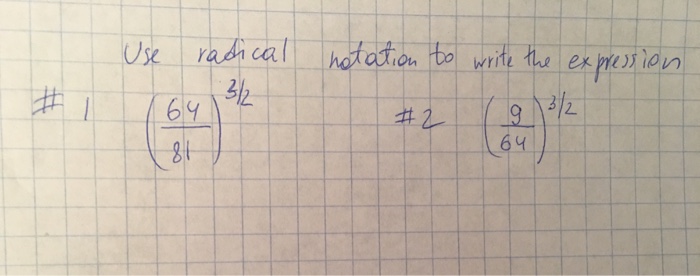 Use radical notation to write the expression
# 1 (64/81)^3/2 #2 (9/64)^3/2